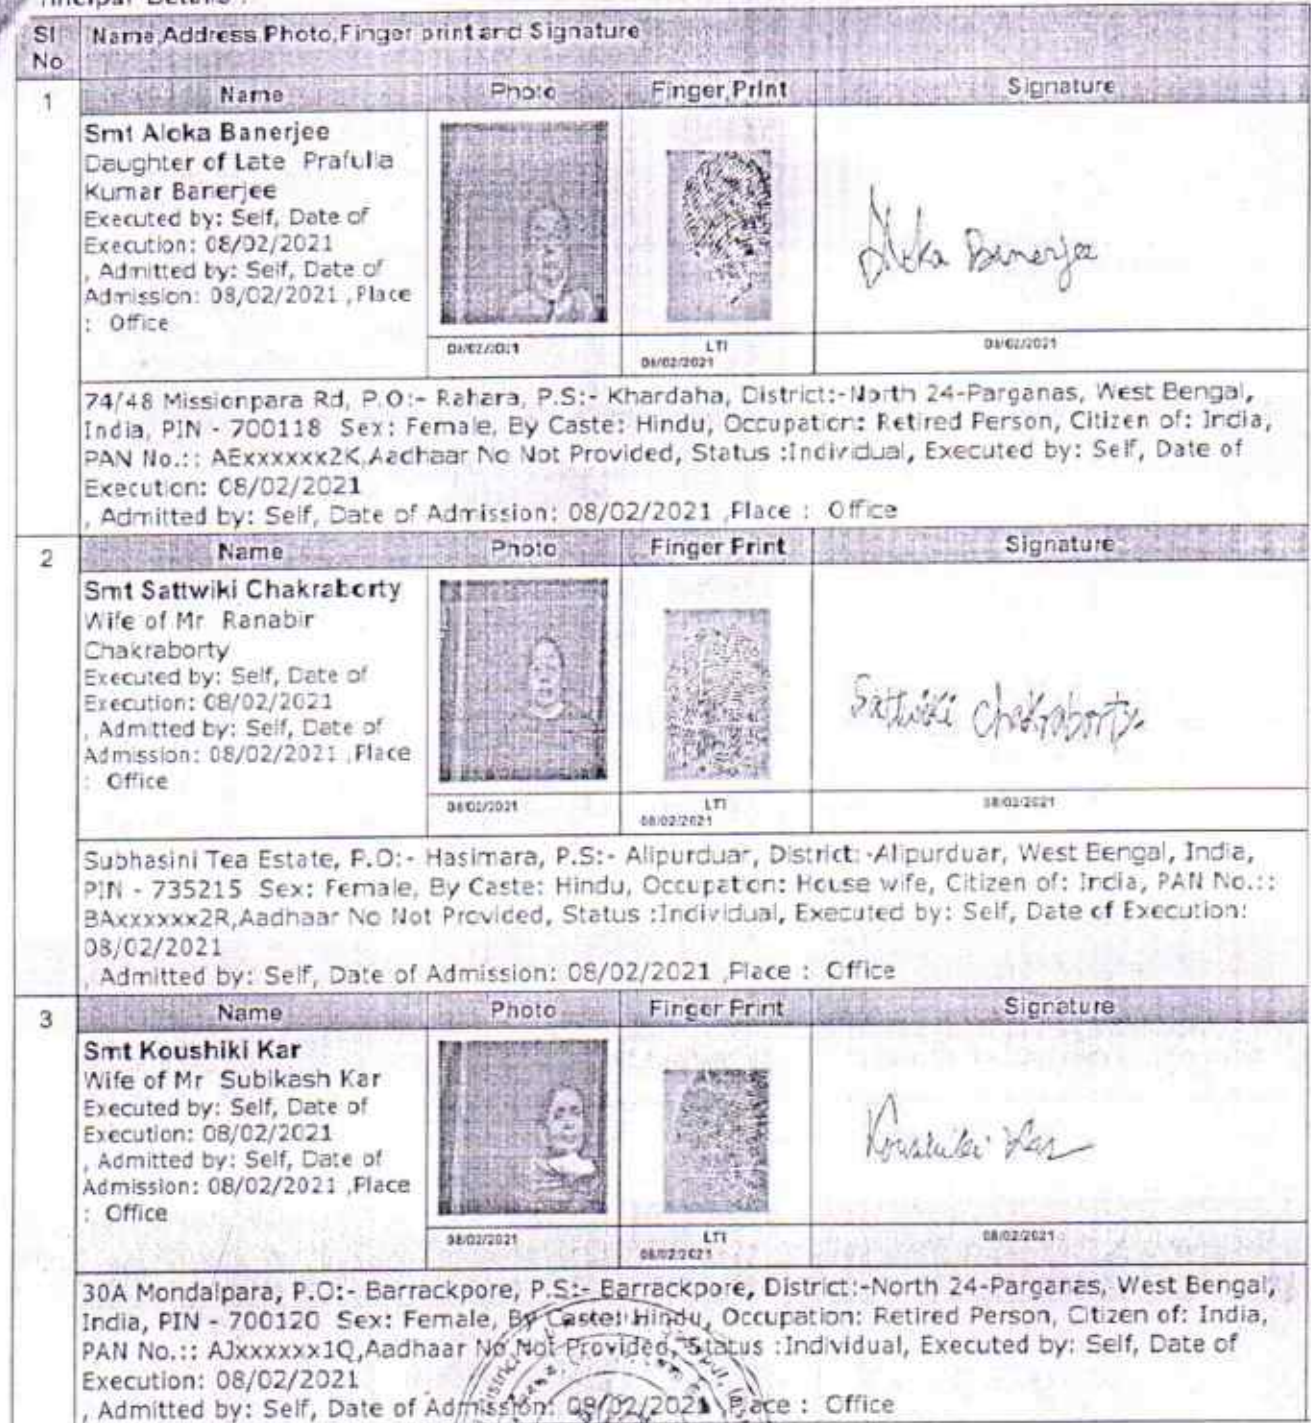 SI No
Name,Address,Photo,Finger print and Signature
1
Name Photo Finger Print Signature
Smt Aloka Banerjee
Daughter of Late Prafulla
Kumar Banerjee
Executed by: Self, Date of
Execution: 08/02/2021
, Admitted by: Self, Date of
Admission: 08/02/2021 ,Place
: Office
Aloka Banerjee
08/02/2021
LTI
08/02/2021
08/02/2021
74/48 Missionpara Rd, P.O:- Rahara, P.S:- Khardaha, District:-North 24-Parganas, West Bengal,
India, PIN - 700118 Sex: Female, By Caste: Hindu, Occupation: Retired Person, Citizen of: India,
PAN No.:: AExxxxxx2K,Aadhaar No Not Provided, Status :Individual, Executed by: Self, Date of
Execution: 08/02/2021
, Admitted by: Self, Date of Admission: 08/02/2021 ,Place : Office
2
Name Photo Finger Print Signature
Smt Sattwiki Chakraborty
Wife of Mr Ranabir
Chakraborty
Executed by: Self, Date of
Execution: 08/02/2021
, Admitted by: Self, Date of
Admission: 08/02/2021 ,Place
: Office
Sattwiki Chakraborty
08/02/2021
LTI
08/02/2021
08/02/2021
Subhasini Tea Estate, P.O:- Hasimara, P.S:- Alipurduar, District:-Alipurduar, West Bengal, India,
PIN - 735215 Sex: Female, By Caste: Hindu, Occupation: House wife, Citizen of: India, PAN No.::
BAxxxxxx2R,Aadhaar No Not Provided, Status :Individual, Executed by: Self, Date of Execution:
08/02/2021
, Admitted by: Self, Date of Admission: 08/02/2021 ,Place : Office
3
Name Photo Finger Print Signature
Smt Koushiki Kar
Wife of Mr Subikash Kar
Executed by: Self, Date of
Execution: 08/02/2021
, Admitted by: Self, Date of
Admission: 08/02/2021 ,Place
: Office
Koushiki Kar
08/02/2021
LTI
08/02/2021
08/02/2021
30A Mondalpara, P.O:- Barrackpore, P.S:- Barrackpore, District:-North 24-Parganas, West Bengal,
India, PIN - 700120 Sex: Female, By Caste: Hindu, Occupation: Retired Person, Citizen of: India,
PAN No.:: AJxxxxxx1Q,Aadhaar No Not Provided, Status :Individual, Executed by: Self, Date of
Execution: 08/02/2021
, Admitted by: Self, Date of Admission: 08/02/2021 ,Place : Office